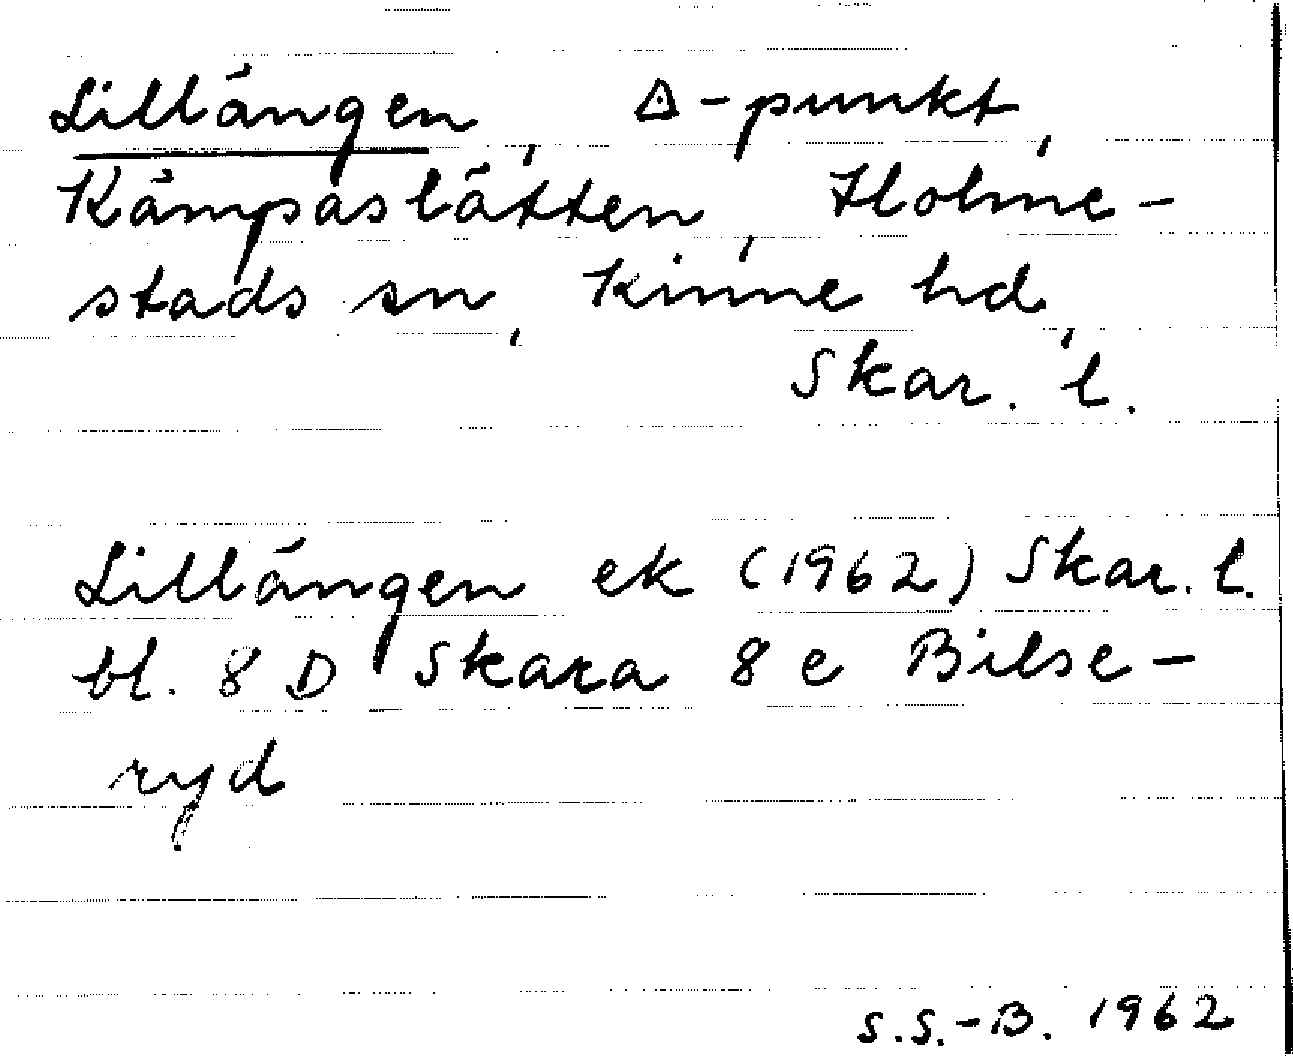 Lillängen, △-punkt,
Kämpaslätten, Holme-
stads sn, Kinne hd,
Skar. l.
Lillängen ek (1962) Skar. l.
bl. 8 D Skara 8 e Bilse-
ryd
S.S.-B. 1962